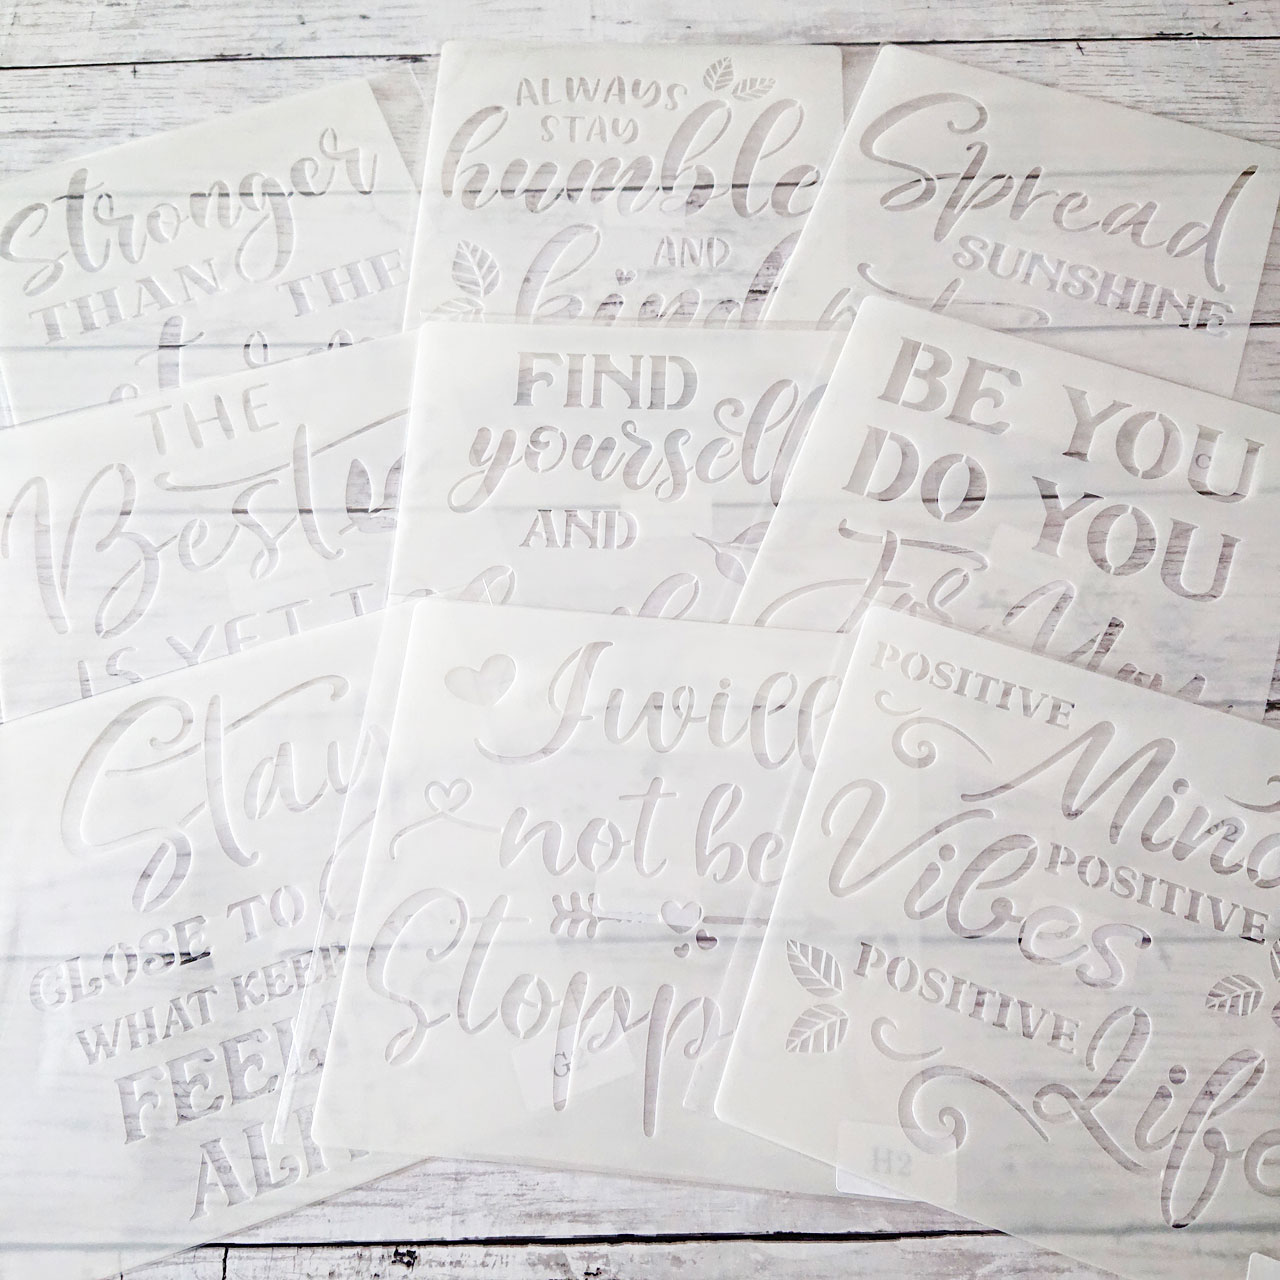 stronger
THAN THE
ALWAYS
STAY
humble
AND
kind
Spread
SUNSHINE
THE
Best
IS YET TO
FIND
yourself
AND
BE YOU
DO YOU
For You
Stay
CLOSE TO
WHAT KEEP
FEEL
ALI
I will
not be
Stopp
G
POSITIVE
Mind
POSITIVE
Vibes
POSITIVE
Life
H2